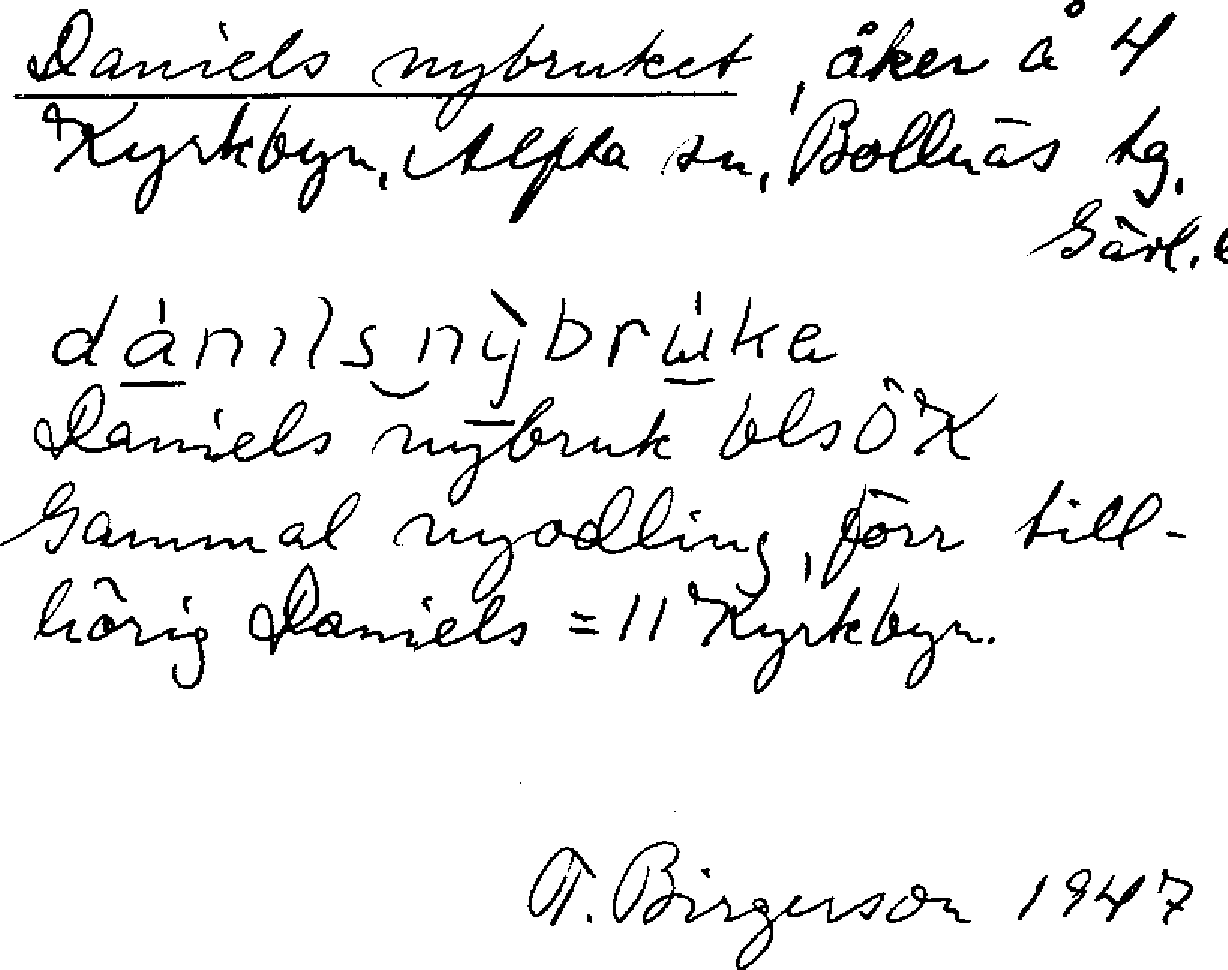 Daniels nybruket, åker å 4
Kyrkbyn, Alfta sn, Bollnäs tg,
Gävl.
dánils nỳbrùka
Daniels nybruk bls ÖK
Gammal nyodling, förr till-
hörig Daniels = 11 Kyrkbyn.
T. Birgerson 1947